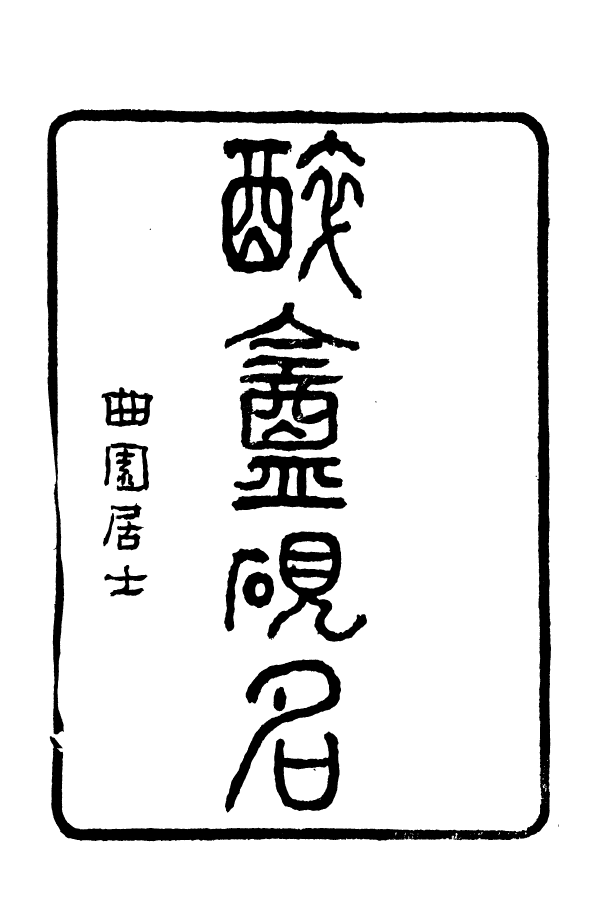 醉盦硯名
曲園居士